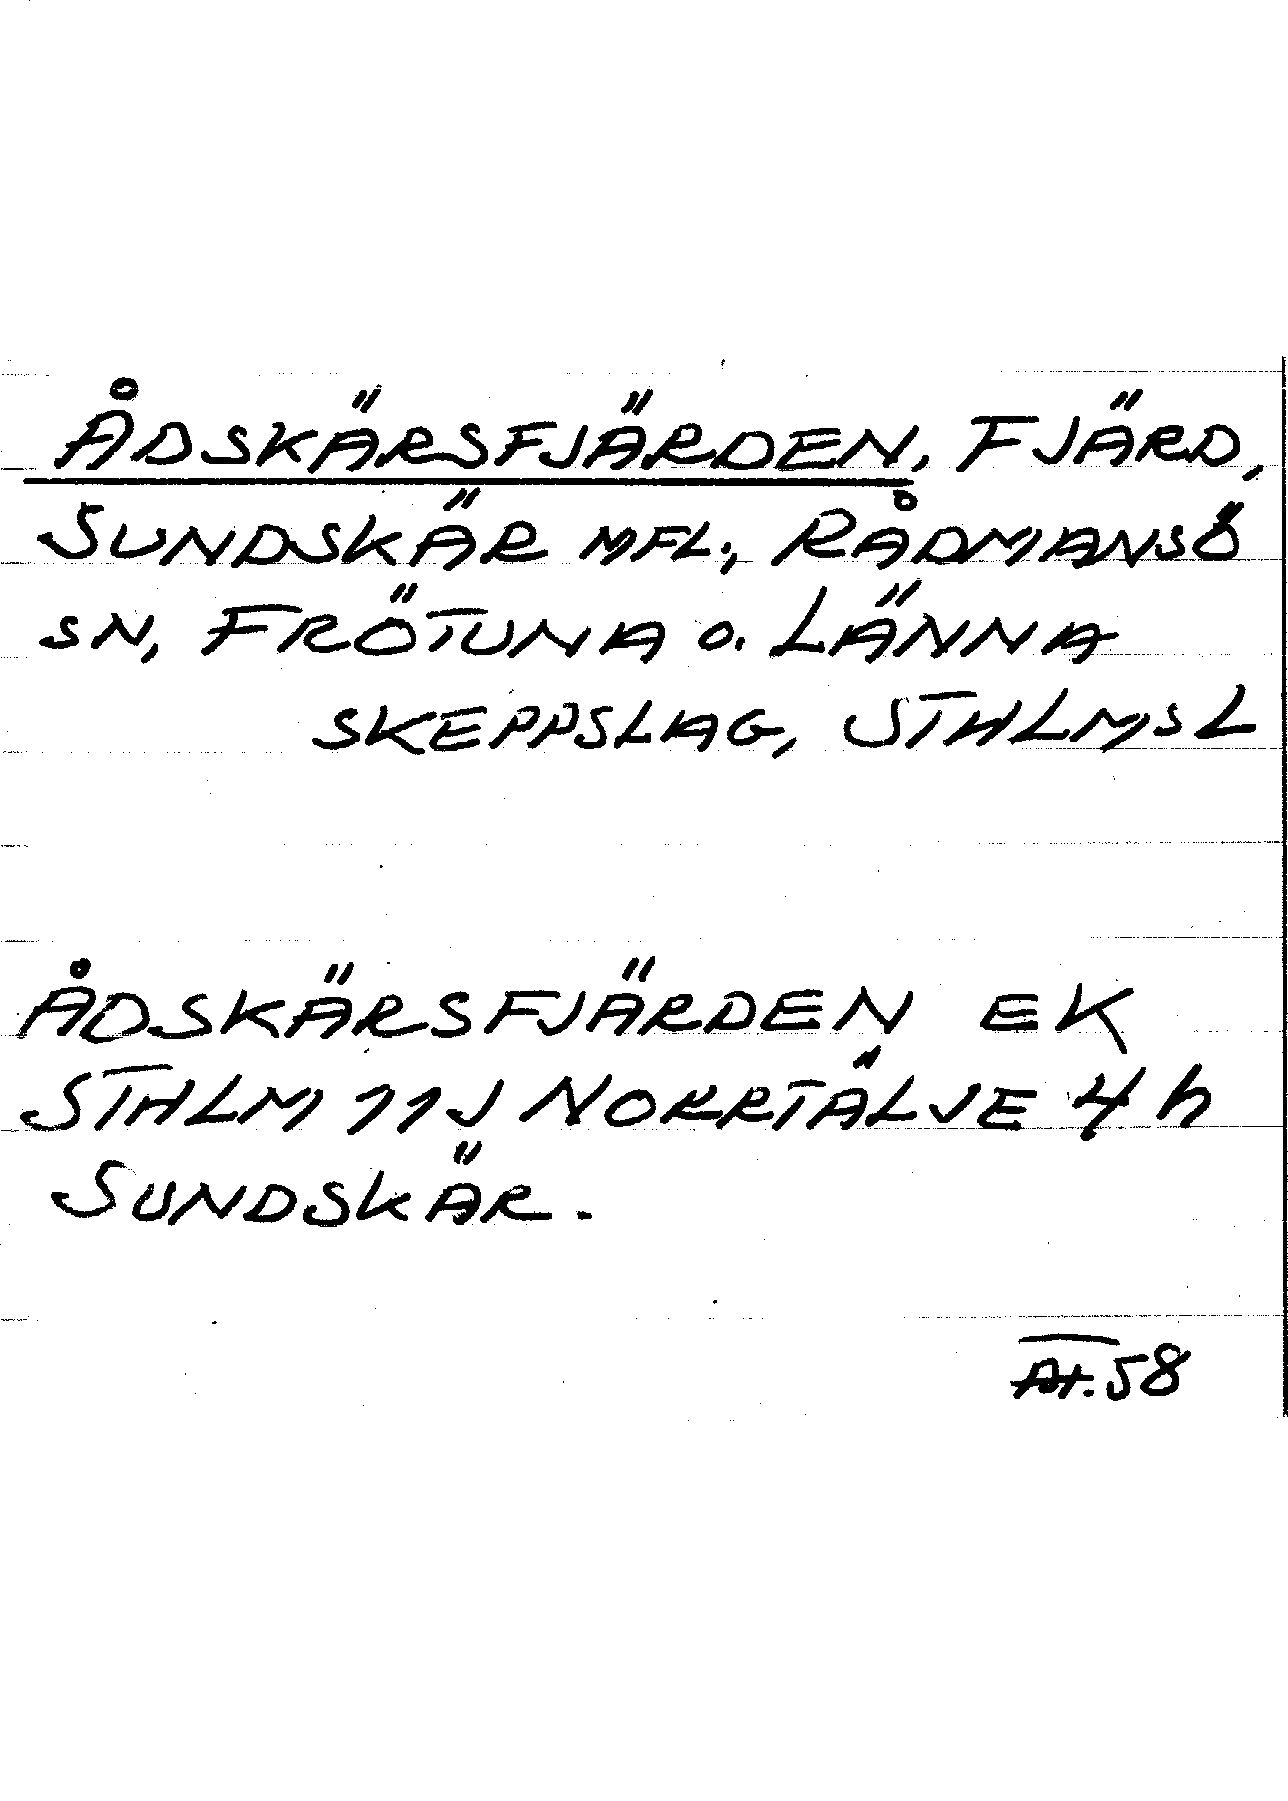 ÅDSKÄRSFJÄRDEN, FJÄRD,
SUNDSKÄR MFL., RÅDMANSÖ
SN, FRÖTUNA O. LÄNNA
SKEPPSLAG, STHLMSL
ÅDSKÄRSFJÄRDEN EK
STHLM 11J NORRTÄLJE 4h
SUNDSKÄR.
58